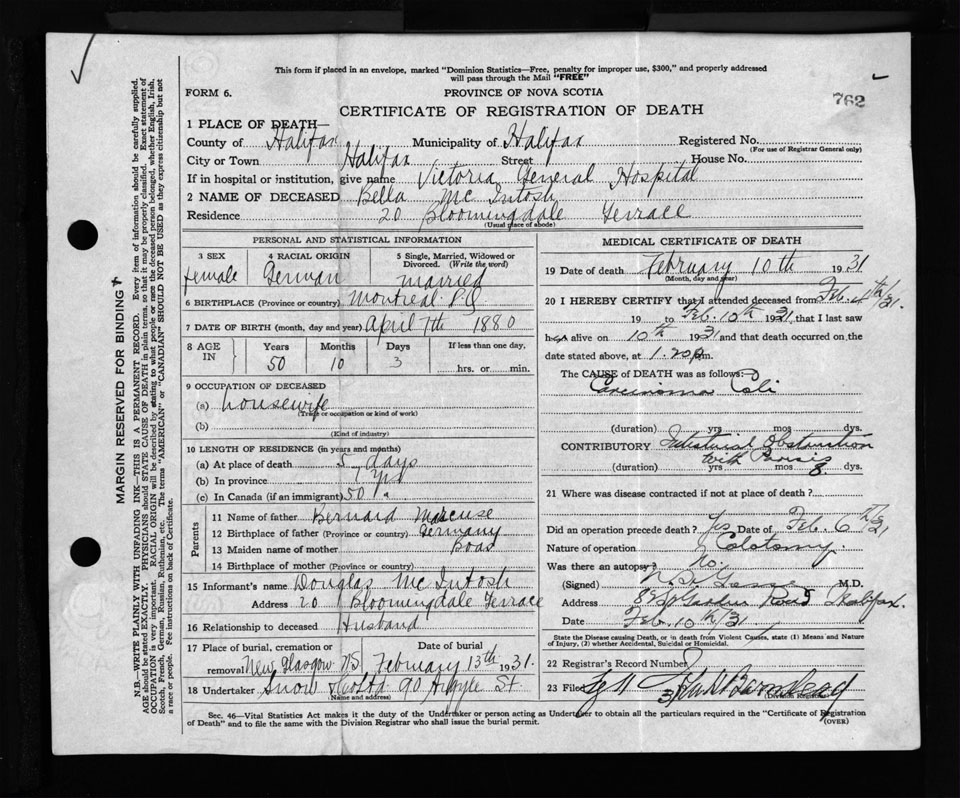 This form if placed in an envelope, marked "Dominion Statistics—Free, penalty for improper use, $300," and properly addressed
will pass through the Mail "FREE"
FORM 6.
PROVINCE OF NOVA SCOTIA
762
CERTIFICATE OF REGISTRATION OF DEATH
1 PLACE OF DEATH—
County of Halifax Municipality of Halifax Registered No.
(For use of Registrar General only)
City or Town Halifax Street House No.
If in hospital or institution, give name Victoria General Hospital
2 NAME OF DECEASED Bella McIntosh
Residence 20 Bloomingdale Terrace
(Usual place of abode)
PERSONAL AND STATISTICAL INFORMATION
3 SEX 4 RACIAL ORIGIN 5 Single, Married, Widowed or
Divorced. (Write the word)
female German married
6 BIRTHPLACE (Province or country) Montreal P.Q
7 DATE OF BIRTH (month, day and year) April 7th 1880
8 AGE IN Years Months Days If less than one day,
50 10 3 hrs. or min.
9 OCCUPATION OF DECEASED
(a) housewife
(Trade or occupation or kind of work)
(b)
(Kind of industry)
10 LENGTH OF RESIDENCE (in years and months)
(a) At place of death 5 days
(b) In province 7 yrs
(c) In Canada (if an immigrant) 50 "
Parents
11 Name of father Bernard Marcuse
12 Birthplace of father (Province or country) Germany
13 Maiden name of mother Boas
14 Birthplace of mother (Province or country)
15 Informant's name Douglas McIntosh
Address 20 Bloomingdale Terrace
16 Relationship to deceased Husband
17 Place of burial, cremation or Date of burial
removal New Glasgow NS. February 13th 1931.
18 Undertaker Snow & Co Ltd 90 Argyle St
(Name and address)
MEDICAL CERTIFICATE OF DEATH
19 Date of death February 10th 1931
(Month, day and year)
20 I HEREBY CERTIFY that I attended deceased from Feb. 4th/31.
19 to Feb. 10th 1931, that I last saw
her alive on 10th 1931 and that death occurred on the
date stated above, at 1.20 p.m.
The CAUSE of DEATH was as follows:
Carcinoma Coli
(duration) yrs mos dys.
CONTRIBUTORY Intestinal Obstruction
with
(duration) yrs mos 8 dys.
21 Where was disease contracted if not at place of death?
Did an operation precede death? Yes Date of Feb. 6th/31
Nature of operation Colotomy.
Was there an autopsy? No.
(Signed) M.D.
Address Road Halifax.
Date Feb. 10th/31
State the Disease causing Death, or in death from Violent Causes, state (1) Means and Nature
of Injury, (2) whether Accidental, Suicidal or Homicidal.
22 Registrar's Record Number
23 Filed
Sec. 46—Vital Statistics Act makes it the duty of the Undertaker or person acting as Undertaker to obtain all the particulars required in the "Certificate of Registration
of Death" and to file the same with the Division Registrar who shall issue the burial permit.
(OVER)
MARGIN RESERVED FOR BINDING
N.B.—WRITE PLAINLY WITH UNFADING INK—THIS IS A PERMANENT RECORD. Every item of information should be carefully supplied.
AGE should be stated EXACTLY. PHYSICIANS should STATE CAUSE OF DEATH in plain terms, so that it may be properly classified. Exact statement of
OCCUPATION is very important. RACIAL ORIGIN will be described by stating to what people or race the deceased person belonged, whether English, Irish,
Scotch, French, German, Russian, Ruthenian, etc. The terms "AMERICAN" or "CANADIAN" SHOULD NOT BE USED as they express citizenship but not
a race or people. See instructions on back of Certificate.